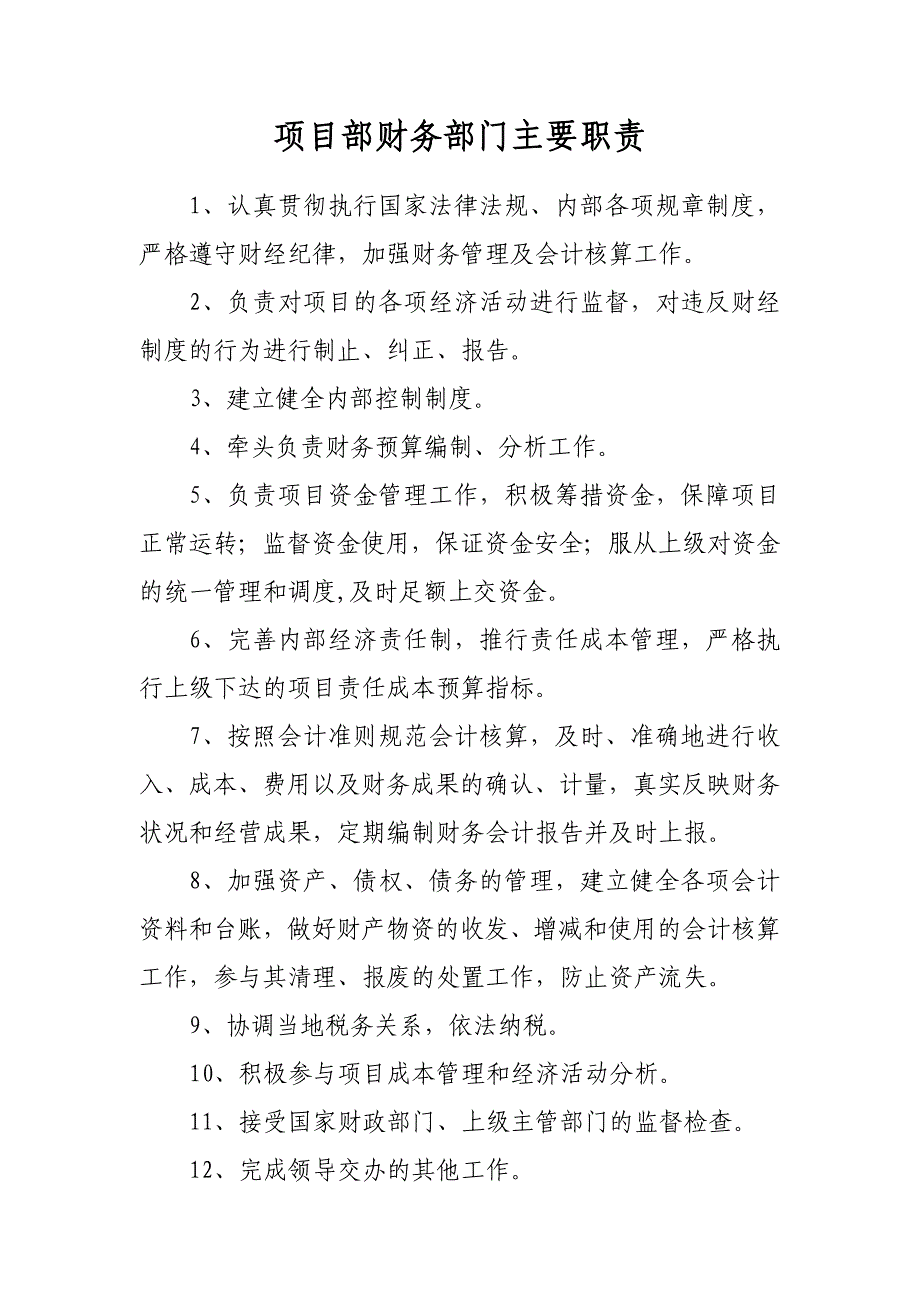 项目部财务部门主要职责
1、认真贯彻执行国家法律法规、内部各项规章制度，
严格遵守财经纪律，加强财务管理及会计核算工作。
2、负责对项目的各项经济活动进行监督，对违反财经
制度的行为进行制止、纠正、报告。
3、建立健全内部控制制度。
4、牵头负责财务预算编制、分析工作。
5、负责项目资金管理工作，积极筹措资金，保障项目
正常运转；监督资金使用，保证资金安全；服从上级对资金
的统一管理和调度,及时足额上交资金。
6、完善内部经济责任制，推行责任成本管理，严格执
行上级下达的项目责任成本预算指标。
7、按照会计准则规范会计核算，及时、准确地进行收
入、成本、费用以及财务成果的确认、计量，真实反映财务
状况和经营成果，定期编制财务会计报告并及时上报。
8、加强资产、债权、债务的管理，建立健全各项会计
资料和台账，做好财产物资的收发、增减和使用的会计核算
工作，参与其清理、报废的处置工作，防止资产流失。
9、协调当地税务关系，依法纳税。
10、积极参与项目成本管理和经济活动分析。
11、接受国家财政部门、上级主管部门的监督检查。
12、完成领导交办的其他工作。